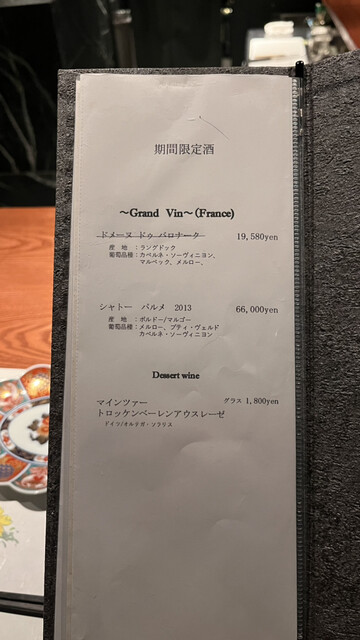 期間限定酒
～Grand Vin～(France)
ドメーヌ ドゥ バロナーク 19,580yen
産 地 ：ラングドック
葡萄品種：カベルネ・ソーヴィニヨン、
マルベック、メルロー、
シャトー パルメ 2013 66,000yen
産 地 ：ボルドー/マルゴー
葡萄品種：メルロー、プティ・ヴェルド
カベルネ・ソーヴィニヨン
Dessert wine
マインツァー グラス 1,800yen
トロッケンベーレンアウスレーゼ
ドイツ/オルテガ・ソラリス